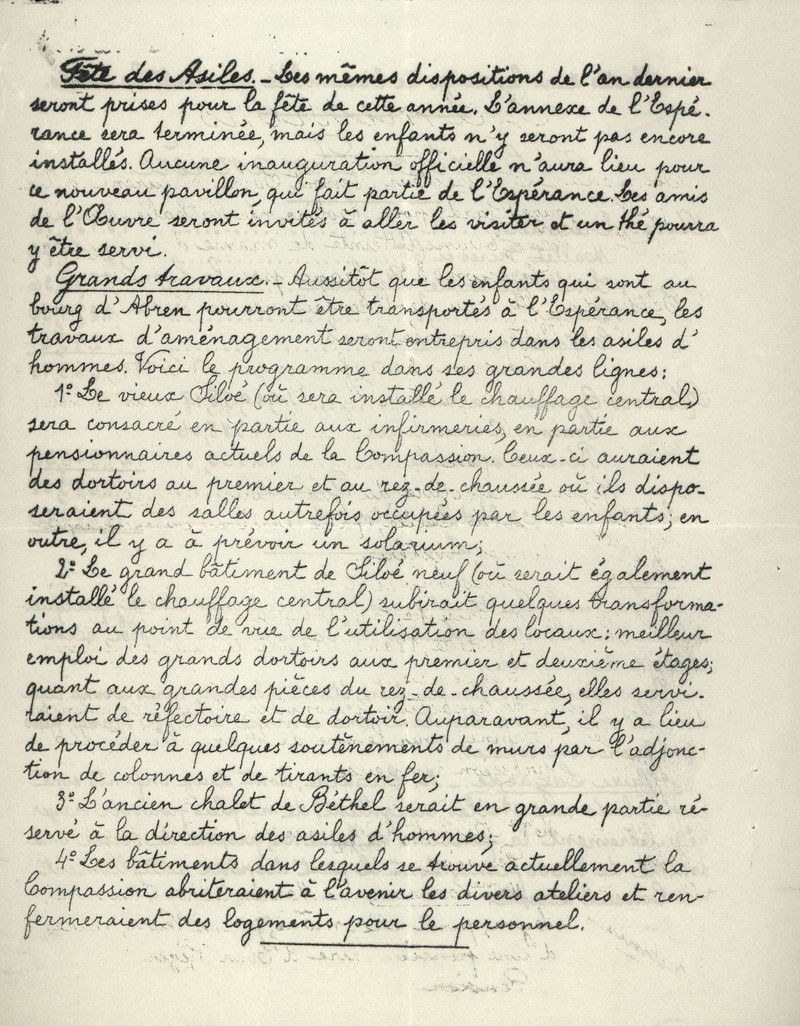 Fête des Asiles. – Les mêmes dispositions de l'an dernier
seront prises pour la fête de cette année. L'annexe de l'Espé-
rance sera terminée, mais les enfants n'y seront pas encore
installés. Aucune inauguration officielle n'aura lieu pour
ce nouveau pavillon, qui fait partie de l'Espérance. Les amis
de l'Œuvre seront invités à aller les visiter et un thé pourra
y être servi.
Grands travaux. – Aussitôt que les enfants qui sont au
bourg d'Abren pourront être transportés à l'Espérance, les
travaux d'aménagement seront entrepris dans les asiles d'
hommes. Voici le programme dans ses grandes lignes:
1º Le vieux Siloé (où sera installé le chauffage central)
sera consacré en partie aux infirmeries, en partie aux
pensionnaires actuels de la Compassion. Ceux-ci auraient
des dortoirs au premier et au rez-de-chaussée où ils dispo-
seraient des salles autrefois occupées par les enfants; en
outre, il y a à prévoir un solarium;
2º Le grand bâtiment de Siloé neuf (où serait également
installé le chauffage central) subirait quelques transforma-
tions au point de vue de l'utilisation des locaux: meilleur
emploi des grands dortoirs aux premier et deuxième étages;
quant aux grandes pièces du rez-de-chaussée, elles servi-
raient de réfectoire et de dortoir. Auparavant, il y a lieu
de procéder à quelques soutènements de murs par l'adjonc-
tion de colonnes et de tirants en fer;
3º L'ancien chalet de Béthel serait en grande partie ré-
servé à la direction des asiles d'hommes;
4º Les bâtiments dans lesquels se trouve actuellement la
Compassion abriteraient à l'avenir les divers ateliers et ren-
fermeraient des logements pour le personnel.